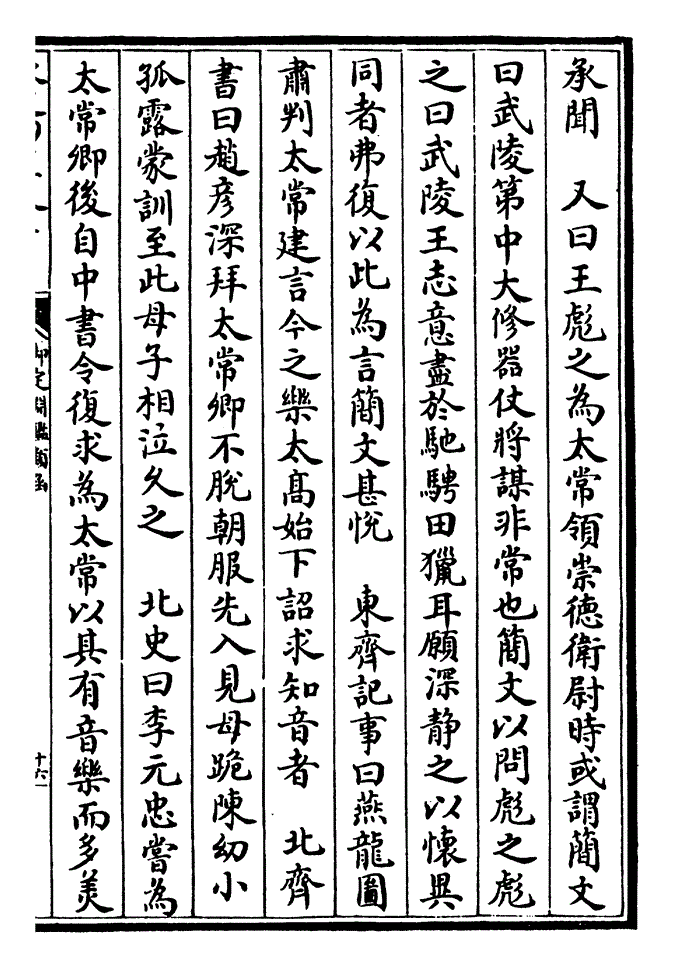 承聞　又曰王彪之為太常領崇徳衛尉時或謂簡文
曰武陵第中大修器仗將謀非常也簡文以問彪之彪
之曰武陵王志意盡於馳騁田獵耳願深靜之以懷異
同者弗復以此為言簡文甚悅　東齊記事曰燕龍圖
肅判太常建言今之樂太髙始下詔求知音者　北齊
書曰趙彦深拜太常卿不脫朝服先入見母跪陳幼小
孤露蒙訓至此母子相泣久之　北史曰李元忠嘗為
太常卿後自中書令復求為太常以其有音樂而多美
御定淵鑑類函
十六